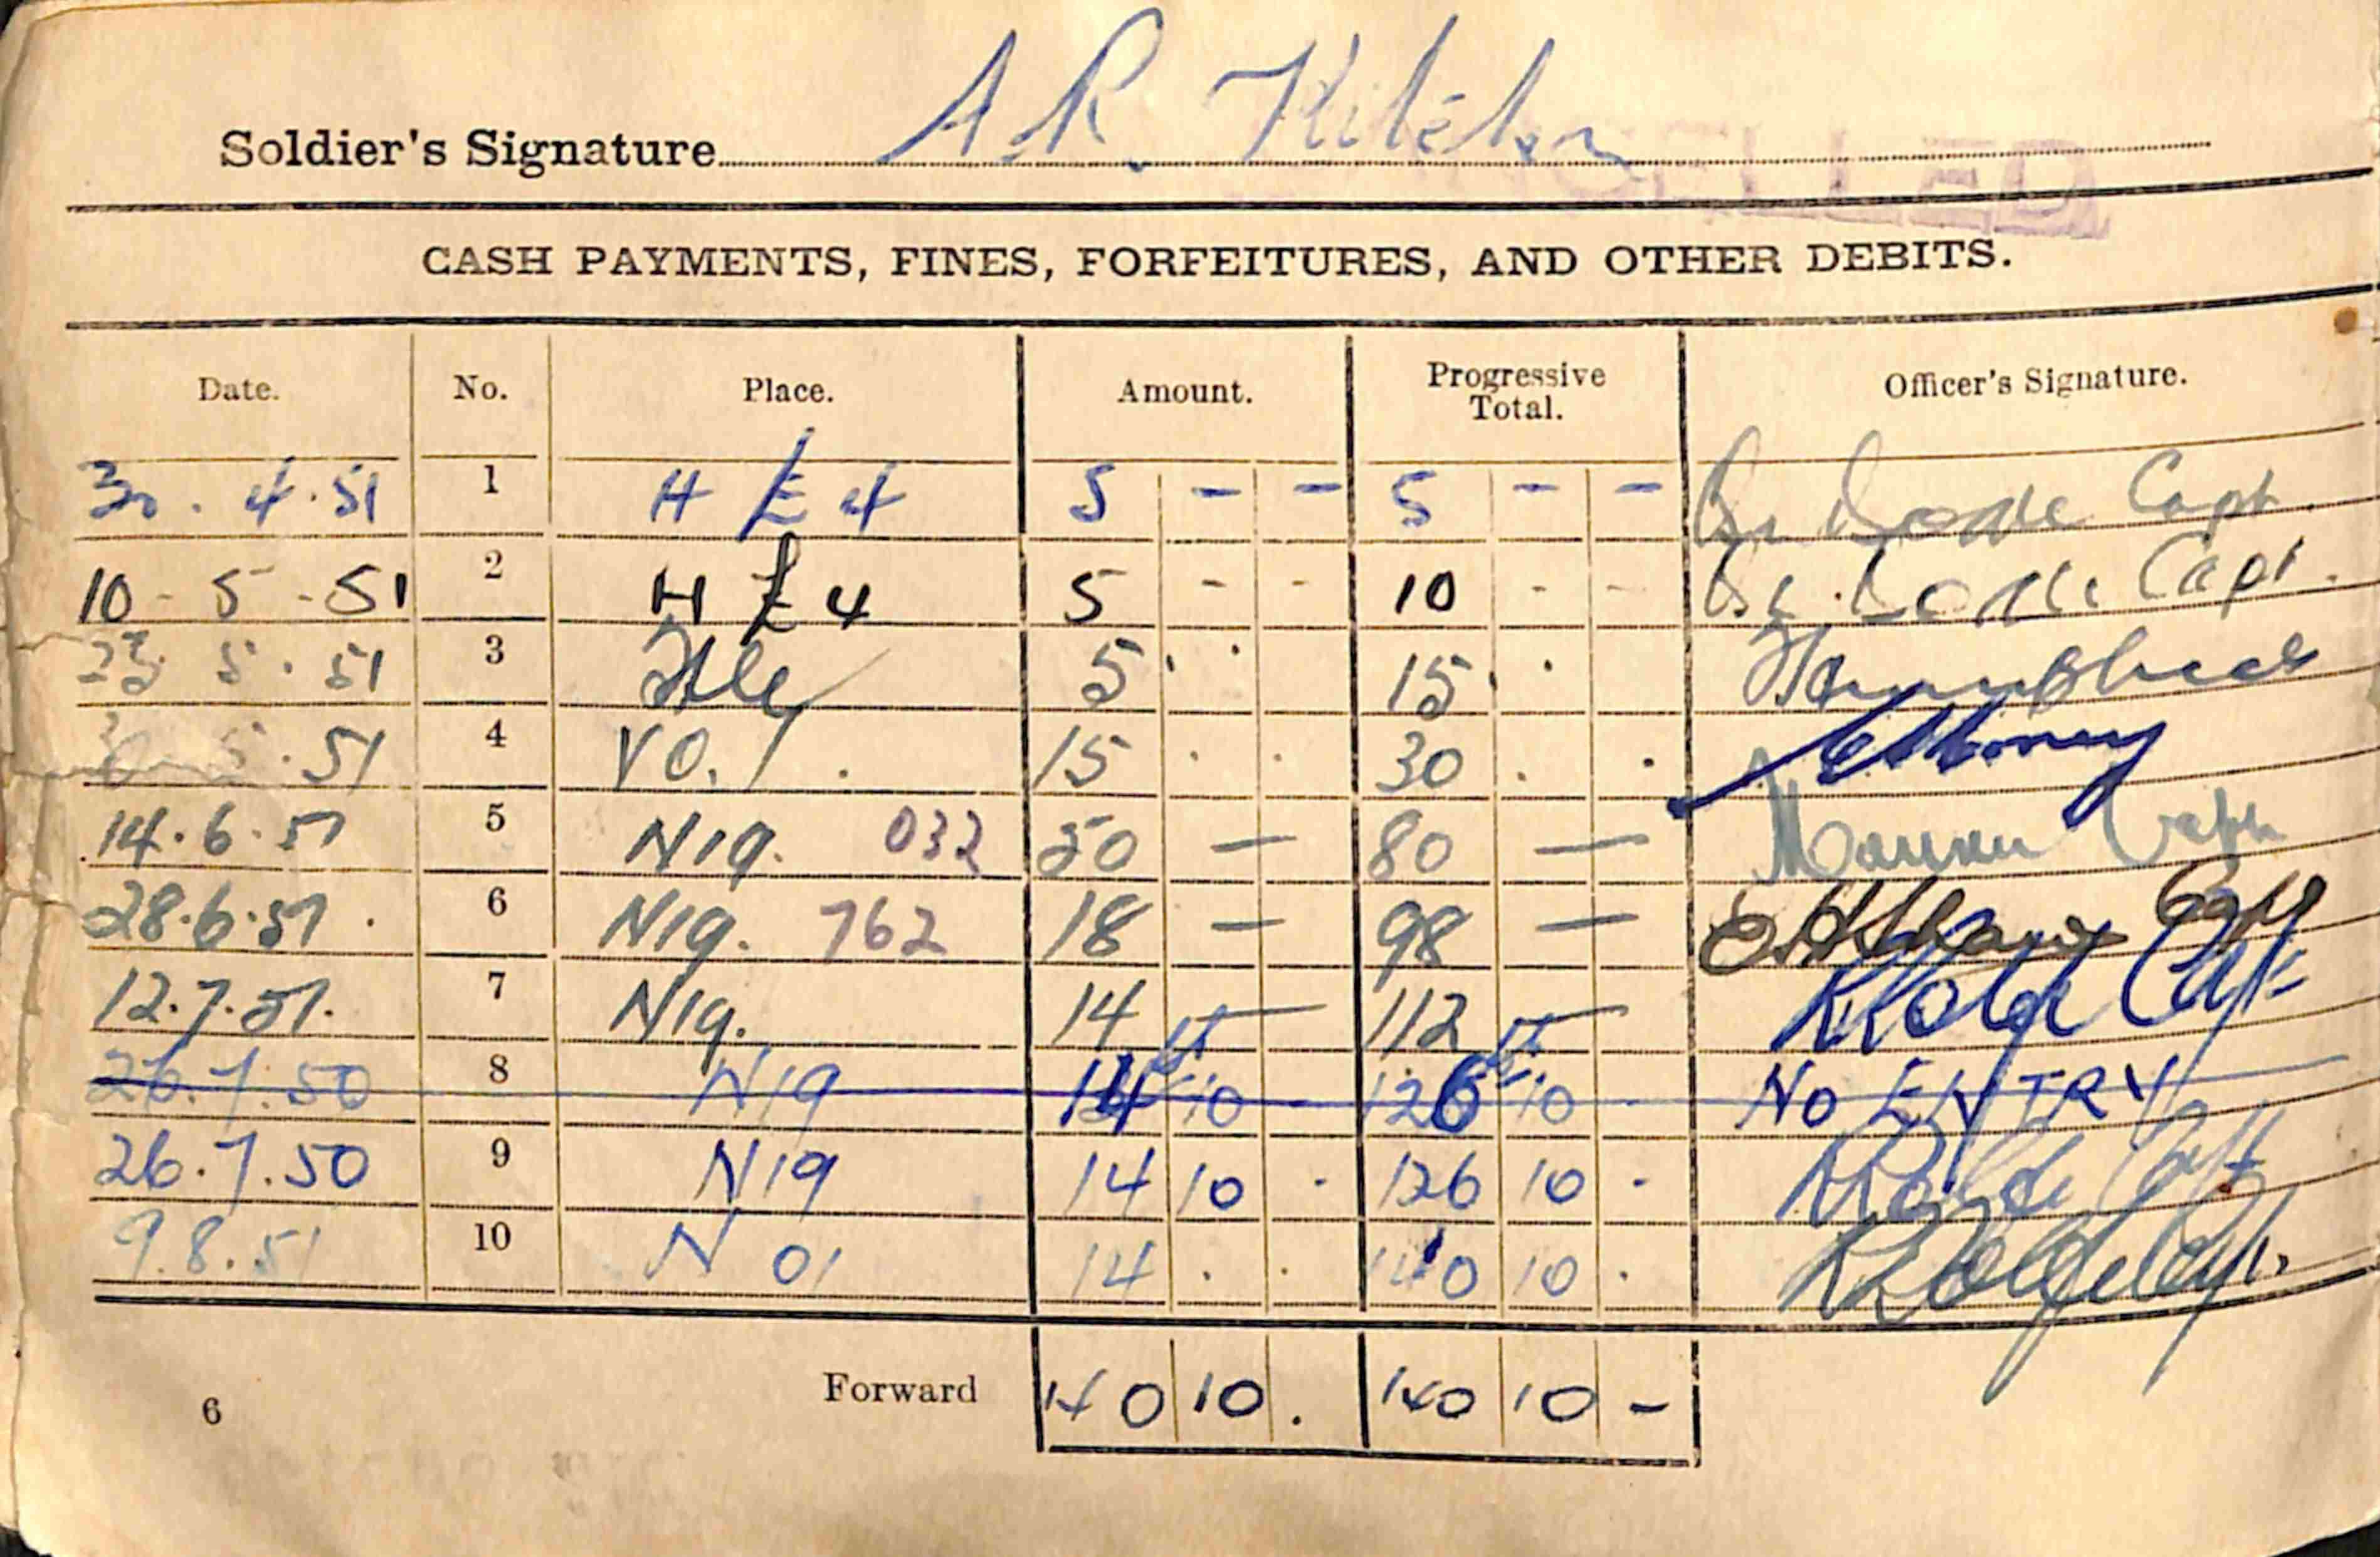 Soldier's Signature A.R. Kitchen
CANCELLED
CASH PAYMENTS, FINES, FORFEITURES, AND OTHER DEBITS.
Date. No. Place. Amount. Progressive Total. Officer's Signature.
30. 4.51 1 H £ 4 5 - - 5 - - Capt.
10-5-51 2 H £ 4 5 - - 10 - - Capt.
5.51 3 5 . . 15 . .
5.51 4 VO.1. 15 . . 30 . .
14.6.51 5 N19. 032 50 — 80 — Capt
28.6.51. 6 N19. 762 18 — 98 — Capt
12.7.51. 7 N19. 14 — 112 — Capt
26.7.50 8 N19 14 10 - 126 10 . NO ENTRY
26.7.50 9 N19 14 10 . 126 10 . Capt
9.8.51 10 N 01 14 . . 140 10 . Capt.
Forward 140 10 . 140 10 -
6